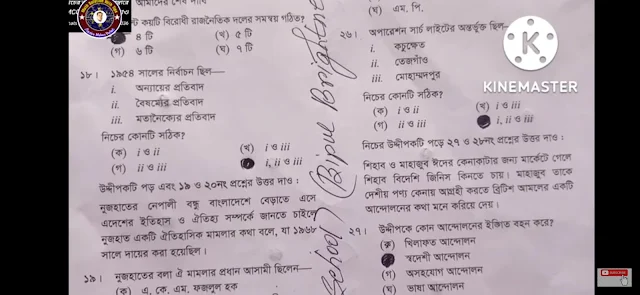 আমাদের শেষ দাবি
ন্ট কয়টি বিরোধী রাজনৈতিক দলের সমন্বয় গঠিত?
৪ টি
(খ) ৫ টি
(গ) ৬ টি
(ঘ) ৭ টি
১৮। ১৯৫৪ সালের নির্বাচন ছিল—
i. অন্যায়ের প্রতিবাদ
ii. বৈষম্যের প্রতিবাদ
iii. মতানৈক্যের প্রতিবাদ
নিচের কোনটি সঠিক?
(ক) i ও ii
(খ) i ও iii
(গ) ii ও iii
i, ii ও iii
উদ্দীপকটি পড় এবং ১৯ ও ২০নং প্রশ্নের উত্তর দাও :
নুজহাতের নেপালী বন্ধু বাংলাদেশে বেড়াতে এসে
এদেশের ইতিহাস ও ঐতিহ্য সম্পর্কে জানতে চাইলে
নুজহাত একটি ঐতিহাসিক মামলার কথা বলে, যা ১৯৬৮
সালে দায়ের করা হয়েছিল।
১৯। নুজহাতের বলা ঐ মামলার প্রধান আসামী ছিলেন—
(ক) এ, কে, এম, ফজলুল হক
(Bipul Brightene
(ঘ) এম. পি.
২৬। অপারেশন সার্চ লাইটের অন্তর্ভুক্ত ছিল
i. কচুক্ষেত
ii. তেজগাঁও
iii. মোহাম্মদপুর
নিচের কোনটি সঠিক?
(ক) i ও ii
(খ) i ও iii
(গ) ii ও iii
i, ii ও iii
নিচের উদ্দীপকটি পড়ে ২৭ ও ২৮নং প্রশ্নের উত্তর দাও :
শিহাব ও মাহাজুব ঈদের কেনাকাটার জন্য মার্কেটে গেলে
শিহাব বিদেশি জিনিস কিনতে চায়। মাহাজুব তাকে
দেশীয় পণ্য কেনায় আগ্রহী করতে ব্রিটিশ আমলের একটি
আন্দোলনের কথা মনে করিয়ে দেয়।
২৭। উদ্দীপকে কোন আন্দোলনের ইঙ্গিত বহন করে?
(ক) খিলাফত আন্দোলন
স্বদেশী আন্দোলন
(গ) অসহযোগ আন্দোলন
(ঘ) ভাষা আন্দোলন
KINEMASTER
SUBSCRIBE